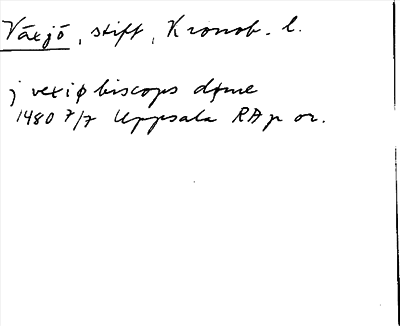 Växjö, stift, Kronob. l.
j vexiø biscops døme
1480 7/7 Uppsala RAp or.